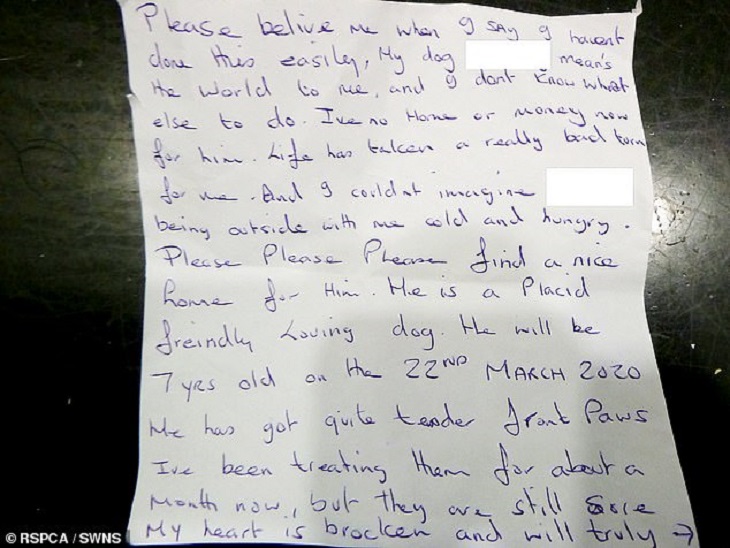 Please belive me when I say I havent
done this easily, My dog mean's
the world to me, and I dont know what
else to do. Ive no Home or money now
for him. Life has taken a really bad turn
for me. And I couldnt imagine
being outside with me cold and hungry.
Please Please Please find a nice
home for Him. He is a Placid
freindly Loving dog. He will be
7 yrs old on the 22ND MARCH 2020
He has got quite tender front Paws
Ive been treating them for about a
Month now, but they are still Sore
My heart is brocken and will truly →
© RSPCA / SWNS